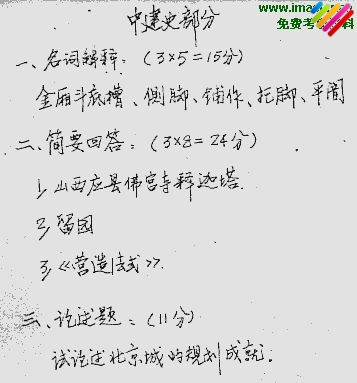 www.ima
免费考
料
中建史部分
一、名词解释：（3×5=15分）
金厢斗底槽、侧脚、铺作、托脚、平闇
二、简要回答：（3×8=24分）
1，山西应县佛宫寺释迦塔．
2，留园
3，《营造法式》．
三、论述题：（11分）
试论述北京城的规划成就．